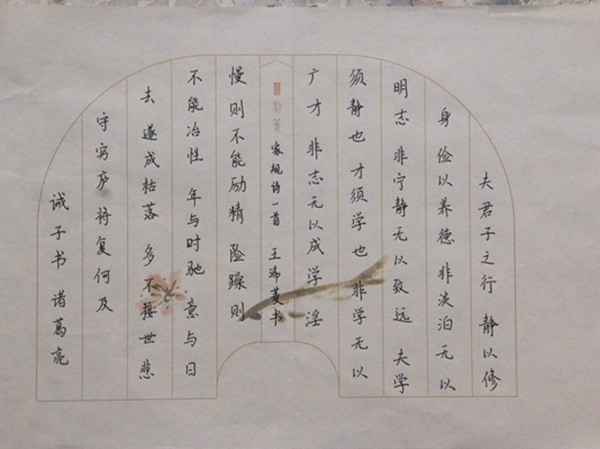 夫君子之行 静以修
身 俭以养德 非淡泊无以
明志 非宁静无以致远 夫学
须静也 才须学也 非学无以
广才 非志无以成学 淫
家规诗一首 王 书
慢则不能励精 险躁则
不能冶性 年与时驰 意与日
去 遂成枯落 多不接世 悲
守穷庐 将复何及
诫子书 诸葛亮